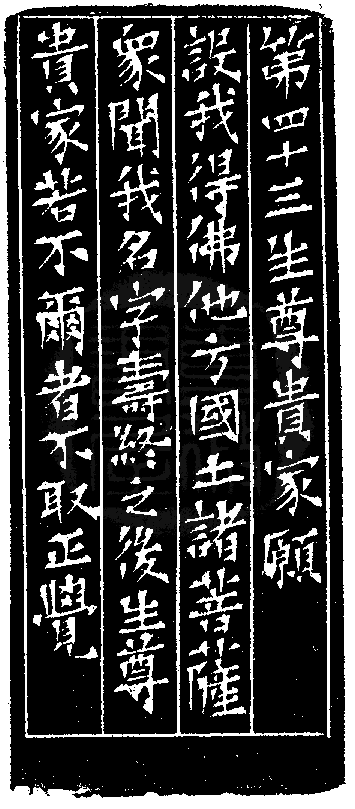 第四十三生尊貴家願
設我得佛他方國土諸菩薩
衆聞我名字壽終之後生尊
貴家若不爾者不取正覺